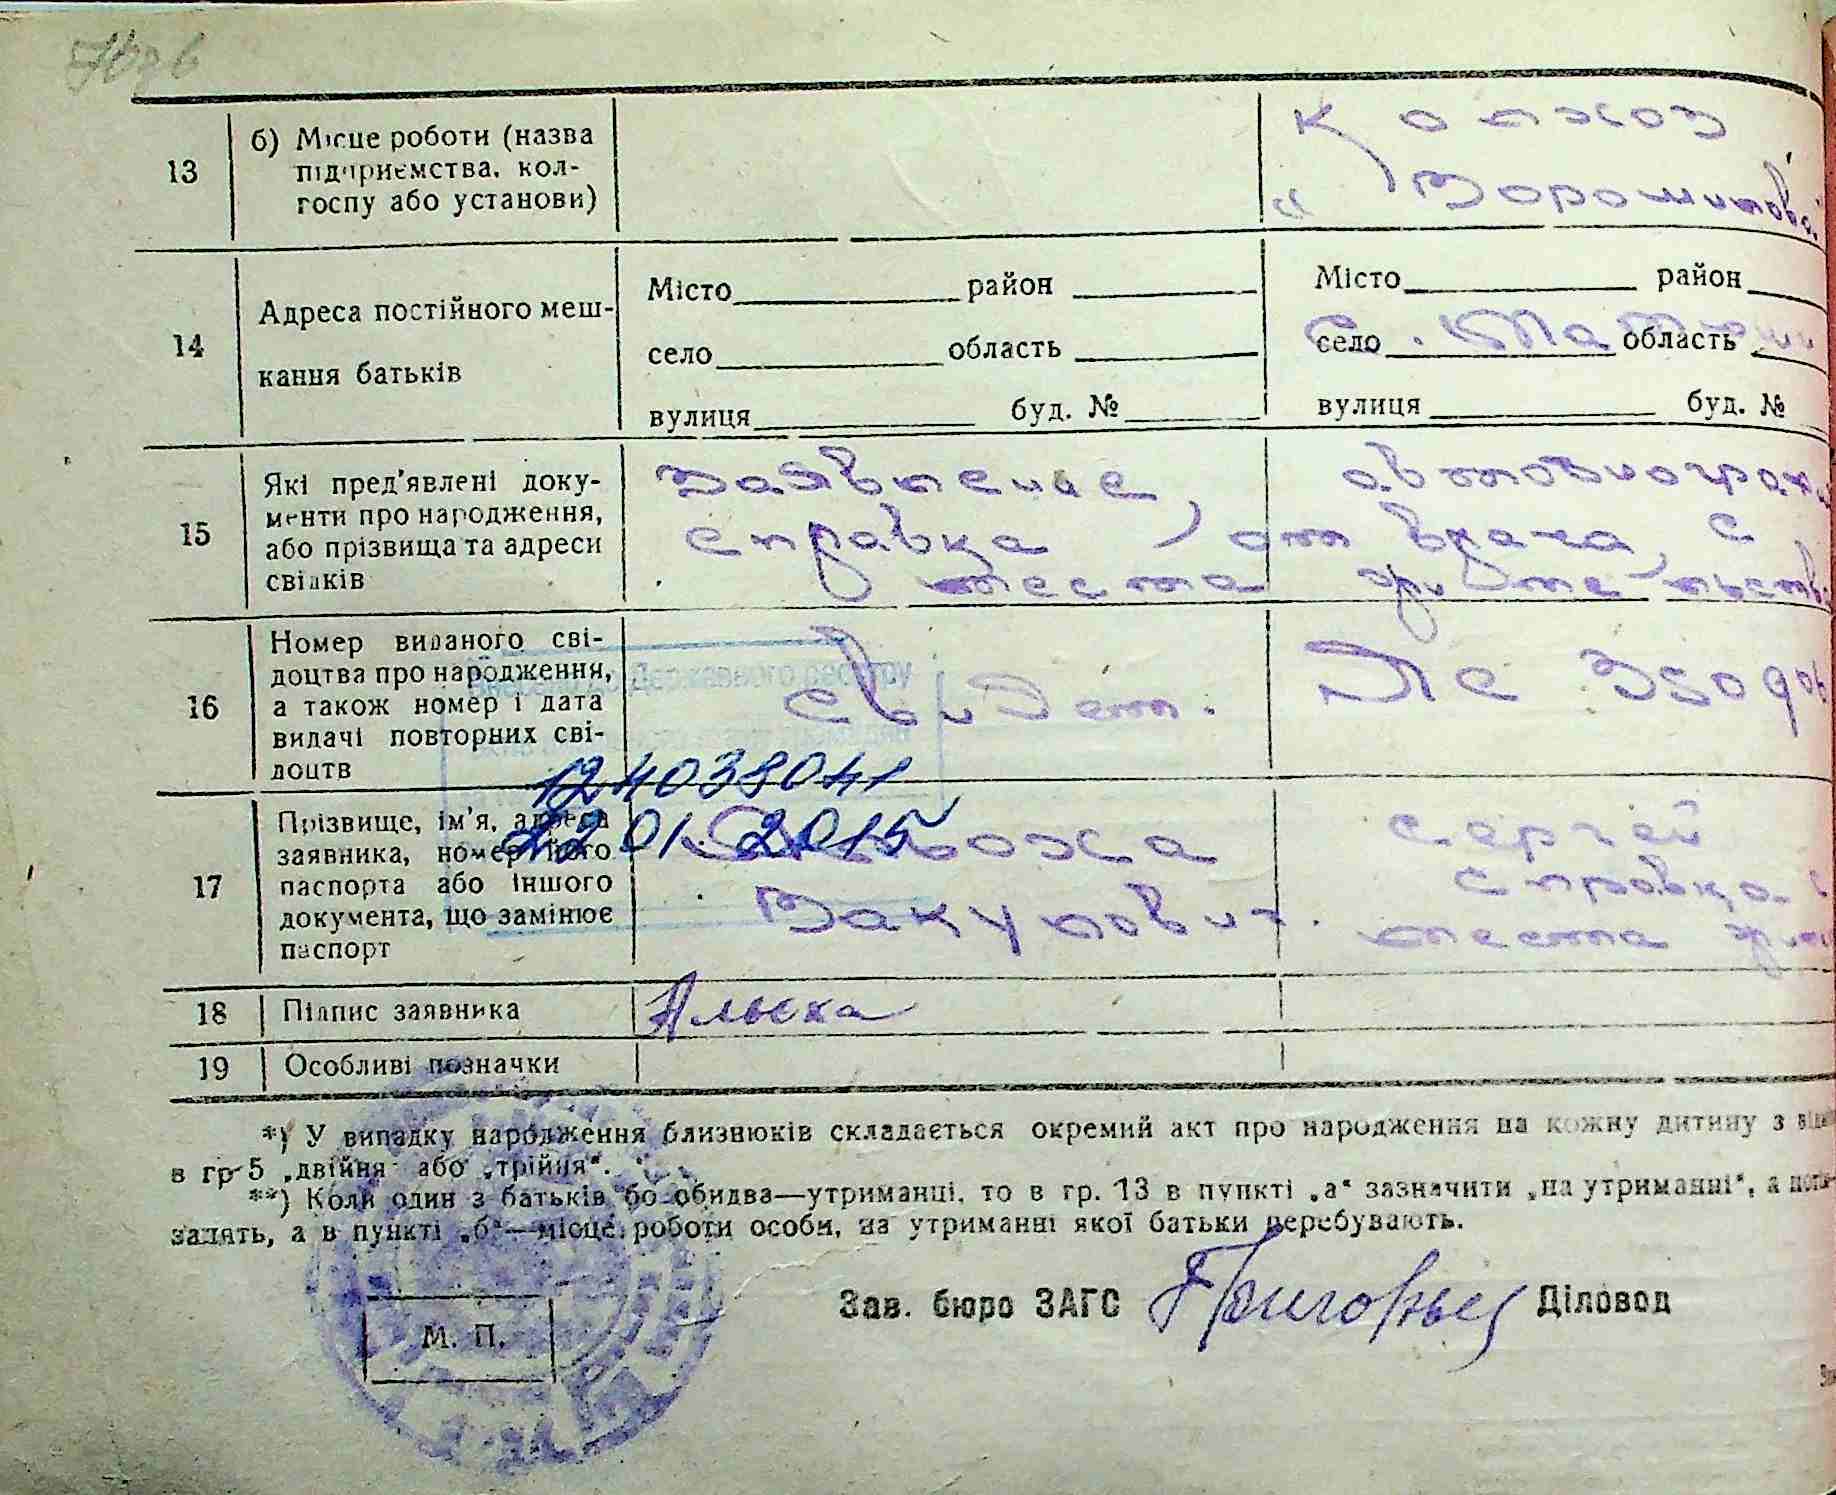 13
б) Місце роботи (назва
підприємства, кол-
госпу або установи)
Колхоз
„Ворошилова"
14
Адреса постійного меш-
кання батьків
Місто район
село область
вулиця буд. №
Місто район
село область
вулиця буд. №
15
Які пред'явлені доку-
менти про народження,
або прізвища та адреси
свідків
Заявление, автобиограф
справка от врача, с
места жительства
16
Номер виданого сві-
доцтва про народження,
а також номер і дата
видачі повторних сві-
доцтв
Державного реєстру
свидет.
12403804
22 01 2015
17
Прізвище, ім'я, адреса
заявника, номер його
паспорта або іншого
документа, що замінює
паспорт
Сергей
Вакулович.
справка с
места жит
18
Підпис заявника
19
Особливі позначки
*) У випадку народження близнюків складається окремий акт про народження на кожну дитину з
в гр 5 „двійня" або „трійня".
**) Коли один з батьків бо обидва—утриманці, то в гр. 13 в пункті „а" зазначити „на утриманні", а
задять, а в пункті „б"—місце роботи особи, на утриманні якої батьки перебувають.
Зав. бюро ЗАГС Діловод
М. П.